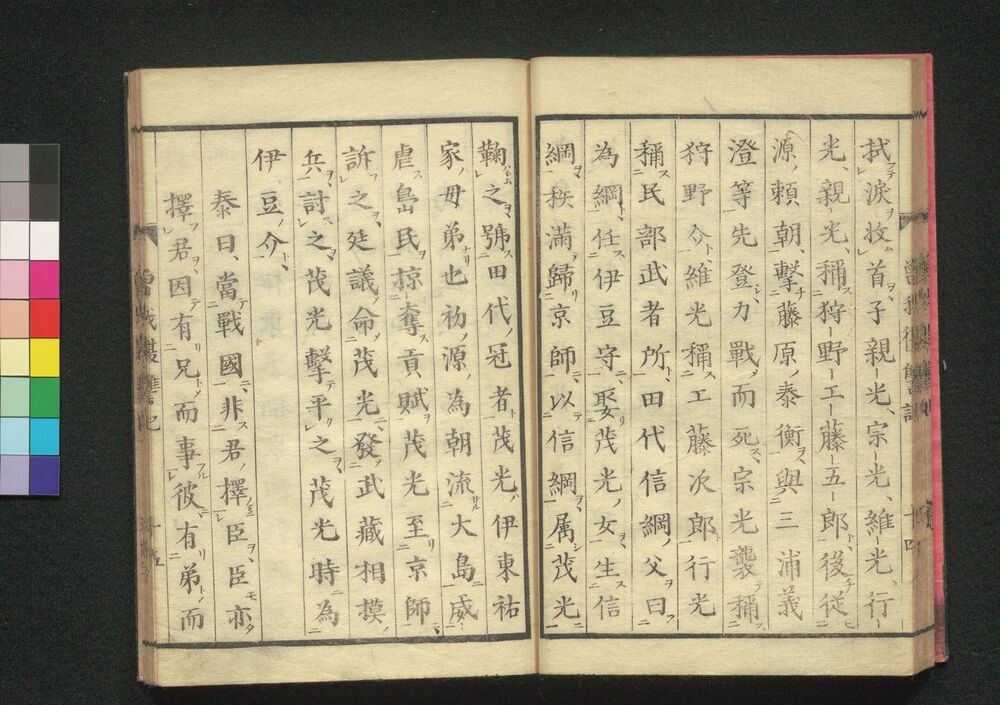 拭淚收首子親光宗光維光行
光親光稱狩野工藤五郎後従
源頼朝擊藤原泰衡與三浦義
澄等先登力戰而死宗光襲稱
狩野介維光稱工藤次郎行光
稱民部武者所田代信綱父曰
為綱任伊豆守娶茂光女生信
綱秩滿歸京師以信綱属茂光
鞠之號田代冠者茂光伊東祐
家母弟也初源為朝流大島威
虐島民掠奪貢賦茂光至京師
訴之廷議命茂光發武藏相摸
兵討之茂光擊平之茂光時為
伊豆介
泰曰當戰國非君擇臣臣亦
擇君因有兄而事彼有弟而